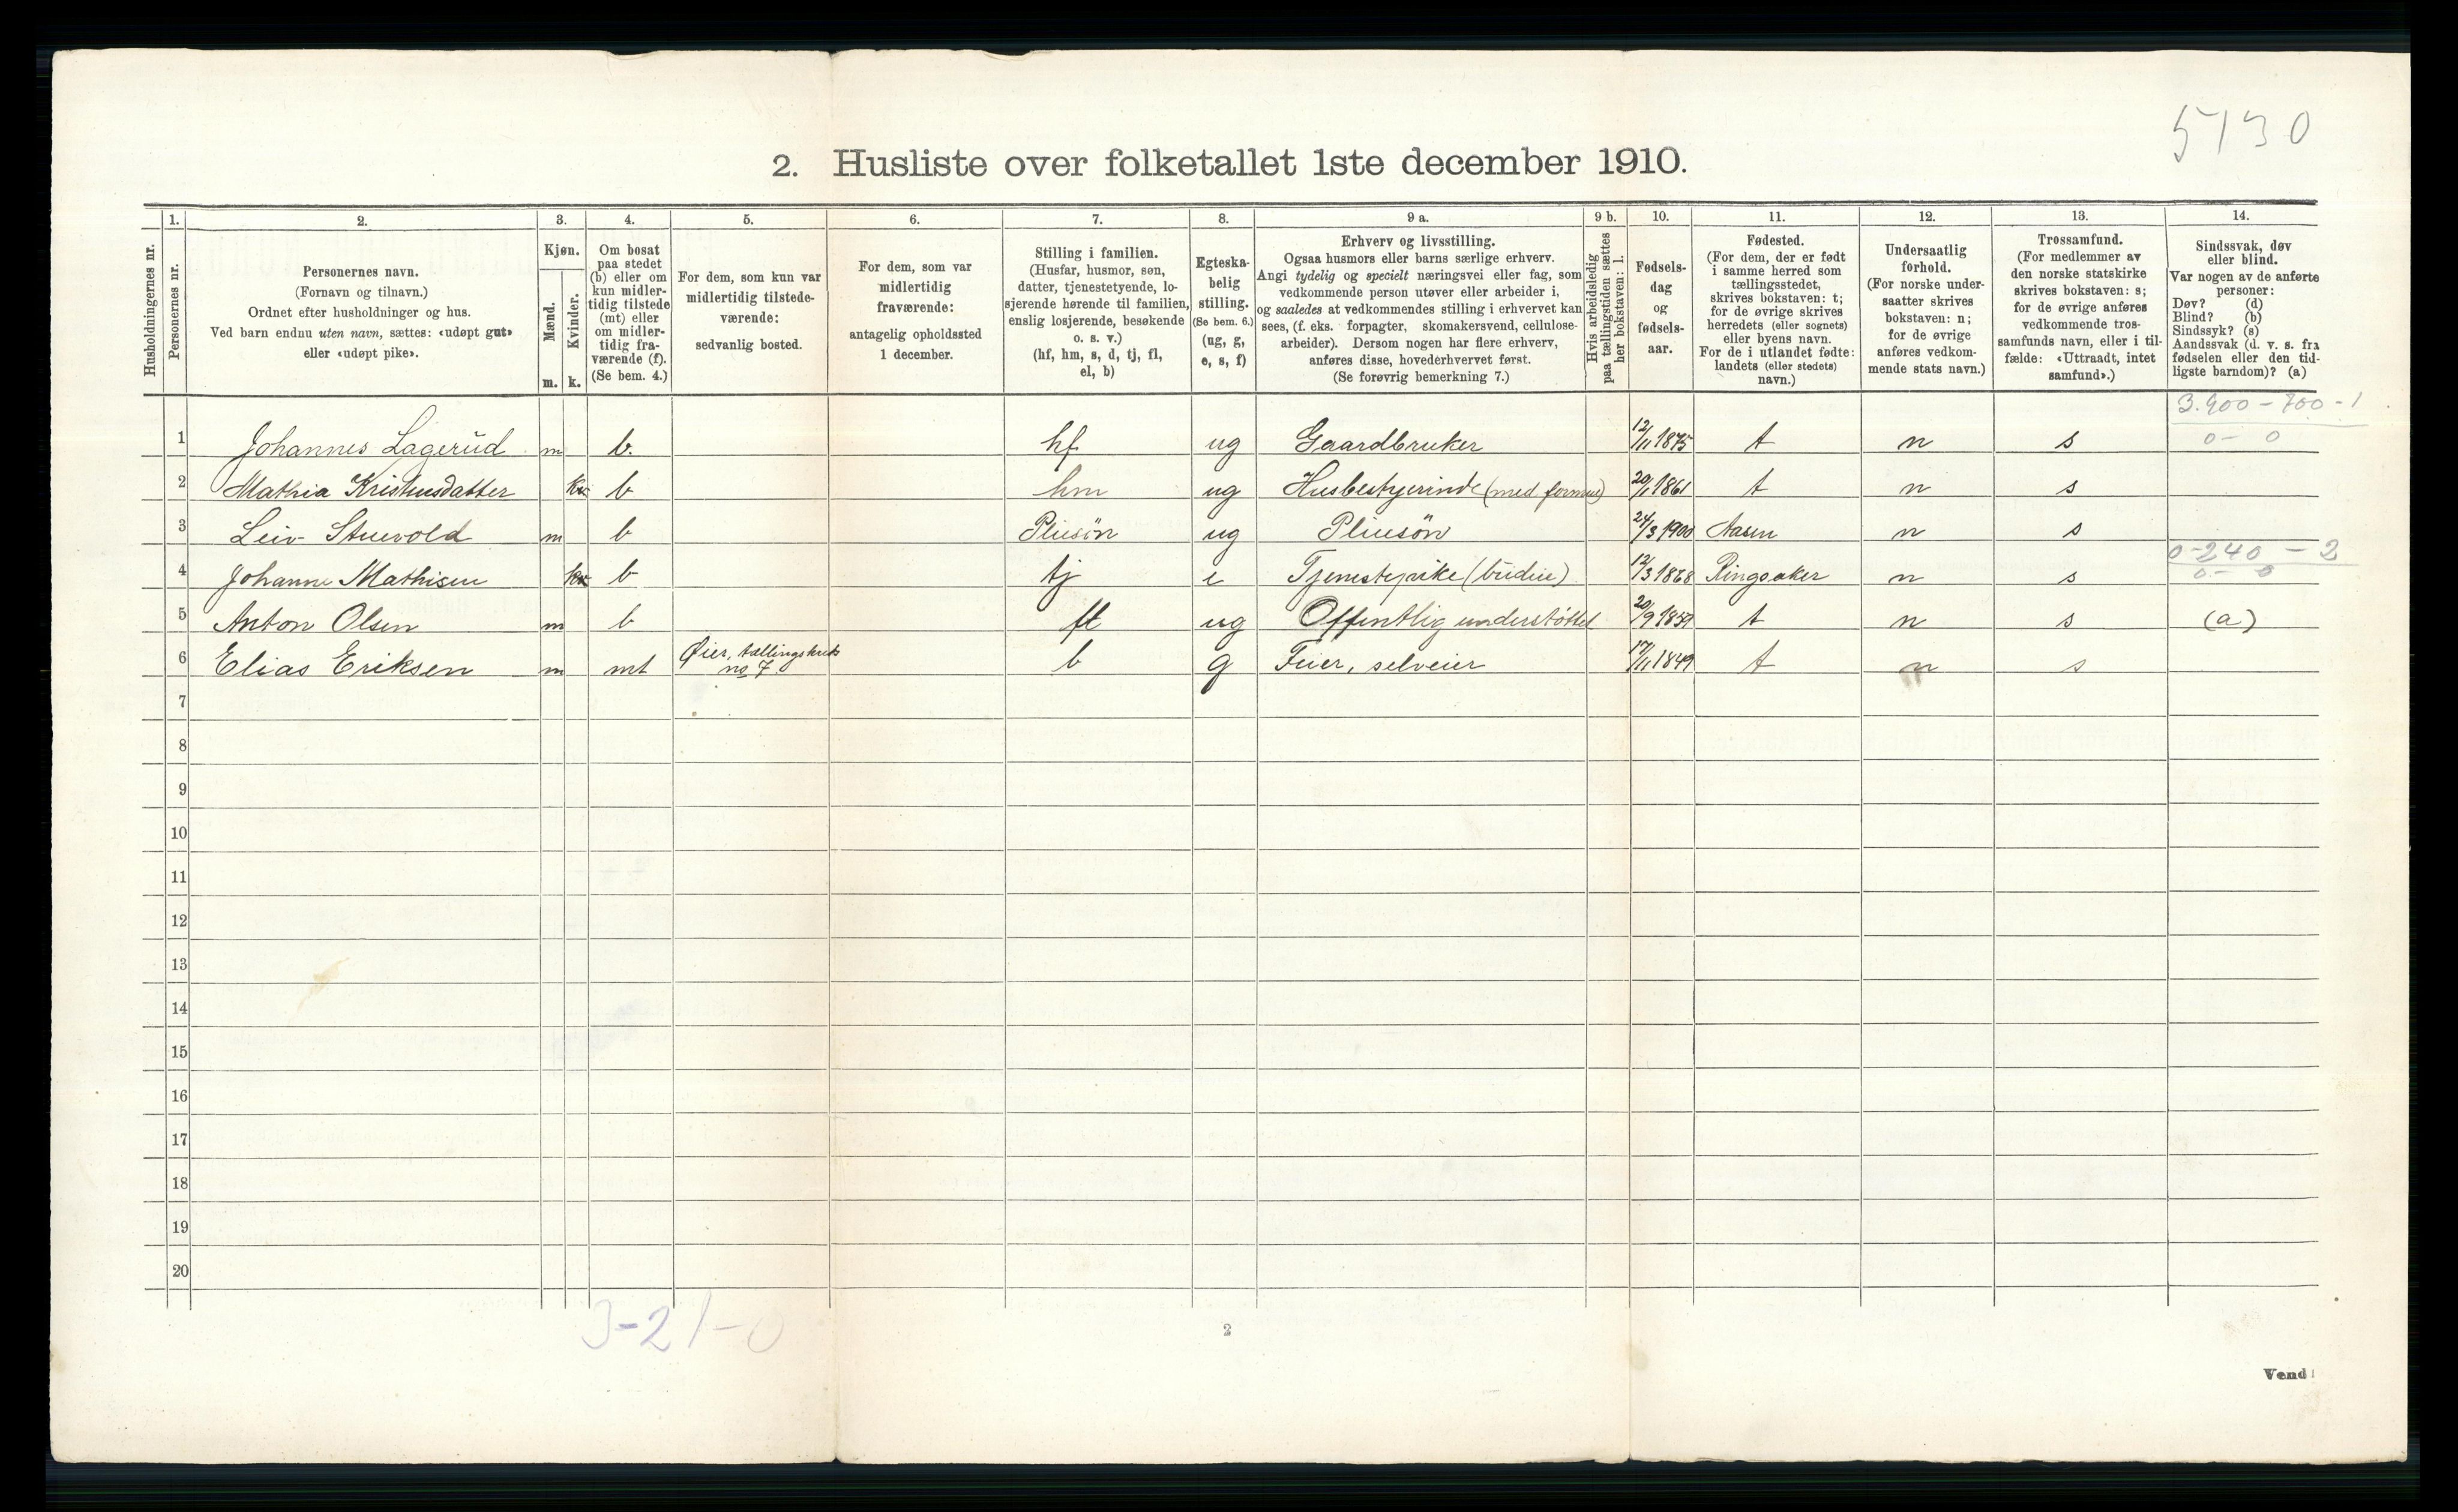 5130
2. Husliste over folketallet 1ste december 1910.
1. 2. 3. 4. 5. 6. 7. 8. 9 a. 9 b. 10. 11. 12. 13. 14.
Husholdningernes nr.
Personernes nr.
Personernes navn.
(Fornavn og tilnavn.)
Ordnet efter husholdninger og hus.
Ved barn endnu uten navn, sættes: «udøpt gut»
eller «udøpt pike».
Kjøn.
Mænd.
Kvinder.
m. k.
Om bosat
paa stedet
(b) eller om
kun midler-
tidig tilstede
(mt) eller
om midler-
tidig fra-
værende (f).
(Se bem. 4.)
For dem, som kun var
midlertidig tilstede-
værende:
sedvanlig bosted.
For dem, som var
midlertidig
fraværende:
antagelig opholdssted
1 december.
Stilling i familien.
(Husfar, husmor, søn,
datter, tjenestetyende, lo-
sjerende hørende til familien,
enslig losjerende, besøkende
o. s. v.)
(hf, hm, s, d, tj, fl,
el, b)
Egteska-
belig
stilling.
(Se bem. 6.)
(ug, g,
e, s, f)
Erhverv og livsstilling.
Ogsaa husmors eller barns særlige erhverv.
Angi tydelig og specielt næringsvei eller fag, som
vedkommende person utøver eller arbeider i,
og saaledes at vedkommendes stilling i erhvervet kan
sees, (f. eks. forpagter, skomakersvend, cellulose-
arbeider). Dersom nogen har flere erhverv,
anføres disse, hovederhvervet først.
(Se forøvrig bemerkning 7.)
Hvis arbeidsledig
paa tællingstiden sættes
her bokstaven: l.
Fødsels-
dag
og
fødsels-
aar.
Fødested.
(For dem, der er født
i samme herred som
tællingsstedet,
skrives bokstaven: t;
for de øvrige skrives
herredets (eller sognets)
eller byens navn.
For de i utlandet fødte:
landets (eller stedets)
navn.)
Undersaatlig
forhold.
(For norske under-
saatter skrives
bokstaven: n;
for de øvrige
anføres vedkom-
mende stats navn.)
Trossamfund.
(For medlemmer av
den norske statskirke
skrives bokstaven: s;
for de øvrige anføres
vedkommende tros-
samfunds navn, eller i til-
fælde: «Uttraadt, intet
samfund».)
Sindssvak, døv
eller blind.
Var nogen av de anførte
personer:
Døv? (d)
Blind? (b)
Sindssyk? (s)
Aandssvak (d. v. s. fra
fødselen eller den tid-
ligste barndom)? (a)
3.900 - 700 - 1
1 Johannes Lagerud m b. hf ug Gaardbruker 12/11 1875 t n s 0 - 0
2 Mathia Kristiansdatter kv b hm ug Husbestyerinde (med formue) 20/1 1861 t n s
3 Leiv Stuevold m b Pliesön ug Pliesön 24/3 1900 Aasen n s
0-240 - 2
4 Johanne Mathisen kv b tj e Tjenestepike (budeie) 12/3 1868 Ringsaker n s 0 - 0
5 Anton Olsen m b fl ug Offentlig understöttet 20/9 1859 t n s (a)
6 Elias Eriksen m mt Øier, tællingskreds no 7. b g Feier, selveier 17/11 1849 t n s
7
8
9
10
11
12
13
14
15
16
17
18
19
20
3-21-0
2
Vend!